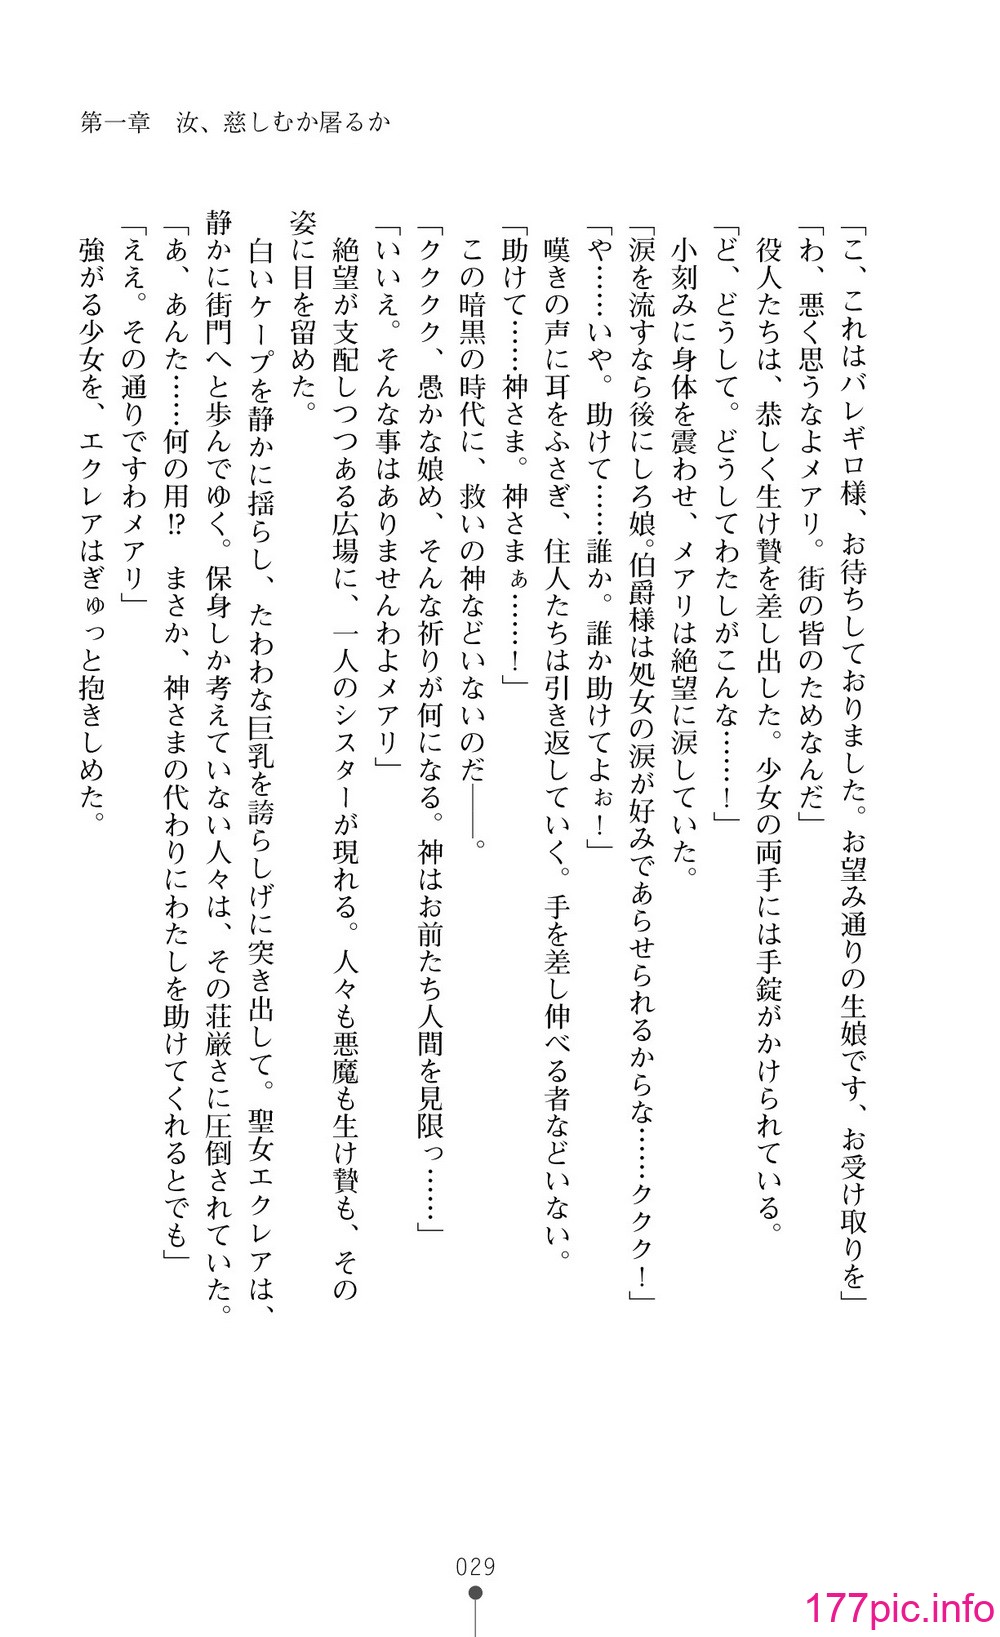 第一章　汝、慈しむか屠るか
「こ、これはバレギロ様、お待ちしておりました。お望み通りの生娘です、お受け取りを」
「わ、悪く思うなよメアリ。街の皆のためなんだ」
　役人たちは、恭しく生け贄を差し出した。少女の両手には手錠がかけられている。
「ど、どうして。どうしてわたしがこんな……！」
　小刻みに身体を震わせ、メアリは絶望に涙していた。
「涙を流すなら後にしろ娘。伯爵様は処女の涙が好みであらせられるからな……ククク！」
「や……いや。助けて……誰か。誰か助けてよぉ！」
　嘆きの声に耳をふさぎ、住人たちは引き返していく。手を差し伸べる者などいない。
「助けて……神さま。神さまぁ……！」
　この暗黒の時代に、救いの神などいないのだ――。
「クククク、愚かな娘め、そんな祈りが何になる。神はお前たち人間を見限っ……」
「いいえ。そんな事はありませんわよメアリ」
　絶望が支配しつつある広場に、一人のシスターが現れる。人々も悪魔も生け贄も、その
姿に目を留めた。
　白いケープを静かに揺らし、たわわな巨乳を誇らしげに突き出して。聖女エクレアは、
静かに街門へと歩んでゆく。保身しか考えていない人々は、その荘厳さに圧倒されていた。
「あ、あんた……何の用!?　まさか、神さまの代わりにわたしを助けてくれるとでも」
「ええ。その通りですわメアリ」
　強がる少女を、エクレアはぎゅっと抱きしめた。
029
177pic.info